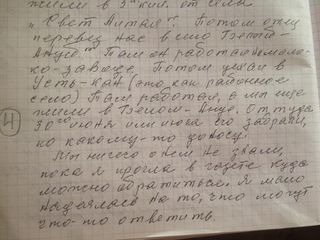 жили в 5 ки. от села
"Свет Алтая". Потом отец
перевез нас в село Белый-
Ануй. Там он работал на моло-
ко-заводе. Потом уехал в
Усть-Кан (это как районное
село) Там работал, а мы еще
жили в Белом-Ануе. Оттуда
30го июня или июля его забрали,
по какому-то доносу.
4
Мы ничего о нем не знали,
пока я прочла в газете куда
можно обратиться. Я мало
надеялась на то, что могут
что-то ответить.